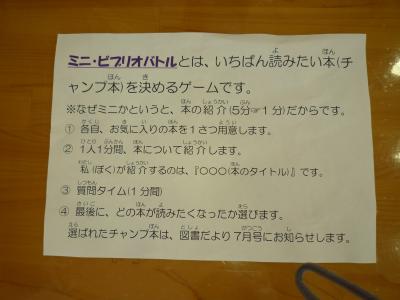 ミニ・ビブリオバトルとは、いちばん読みたい本(チ
ャンプ本)を決めるゲームです。
※なぜミニかというと、本の紹介(5分☞1分)だからです。
① 各自、お気に入りの本を1さつ用意します。
② 1人1分間、本について紹介します。
私(ぼく)が紹介するのは、『○○○(本のタイトル)』です。
③ 質問タイム(1分間)
④ 最後に、どの本が読みたくなったか選びます。
選ばれたチャンプ本は、図書だより7月号にお知らせします。